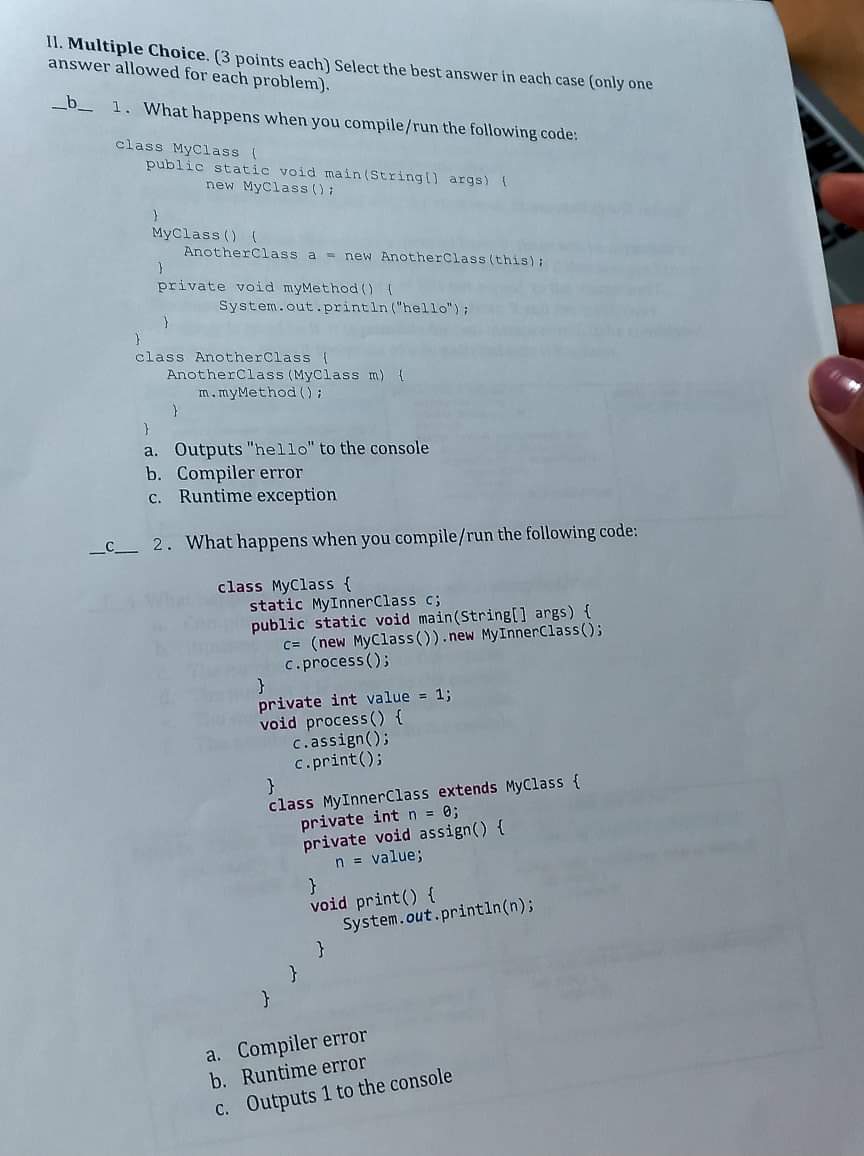 II. Multiple Choice. (3 points each) Select the best answer in each case (only one
answer allowed for each problem).
__b__ 1. What happens when you compile/run the following code:
class MyClass {
public static void main(String[] args) {
new MyClass();
}
MyClass() {
AnotherClass a = new AnotherClass(this);
}
private void myMethod() {
System.out.println("hello");
}
}
class AnotherClass {
AnotherClass(MyClass m) {
m.myMethod();
}
}
a. Outputs "hello" to the console
b. Compiler error
c. Runtime exception
__c__ 2. What happens when you compile/run the following code:
class MyClass {
static MyInnerClass c;
public static void main(String[] args) {
c= (new MyClass()).new MyInnerClass();
c.process();
}
private int value = 1;
void process() {
c.assign();
c.print();
}
class MyInnerClass extends MyClass {
private int n = 0;
private void assign() {
n = value;
}
void print() {
System.out.println(n);
}
}
}
a. Compiler error
b. Runtime error
c. Outputs 1 to the console